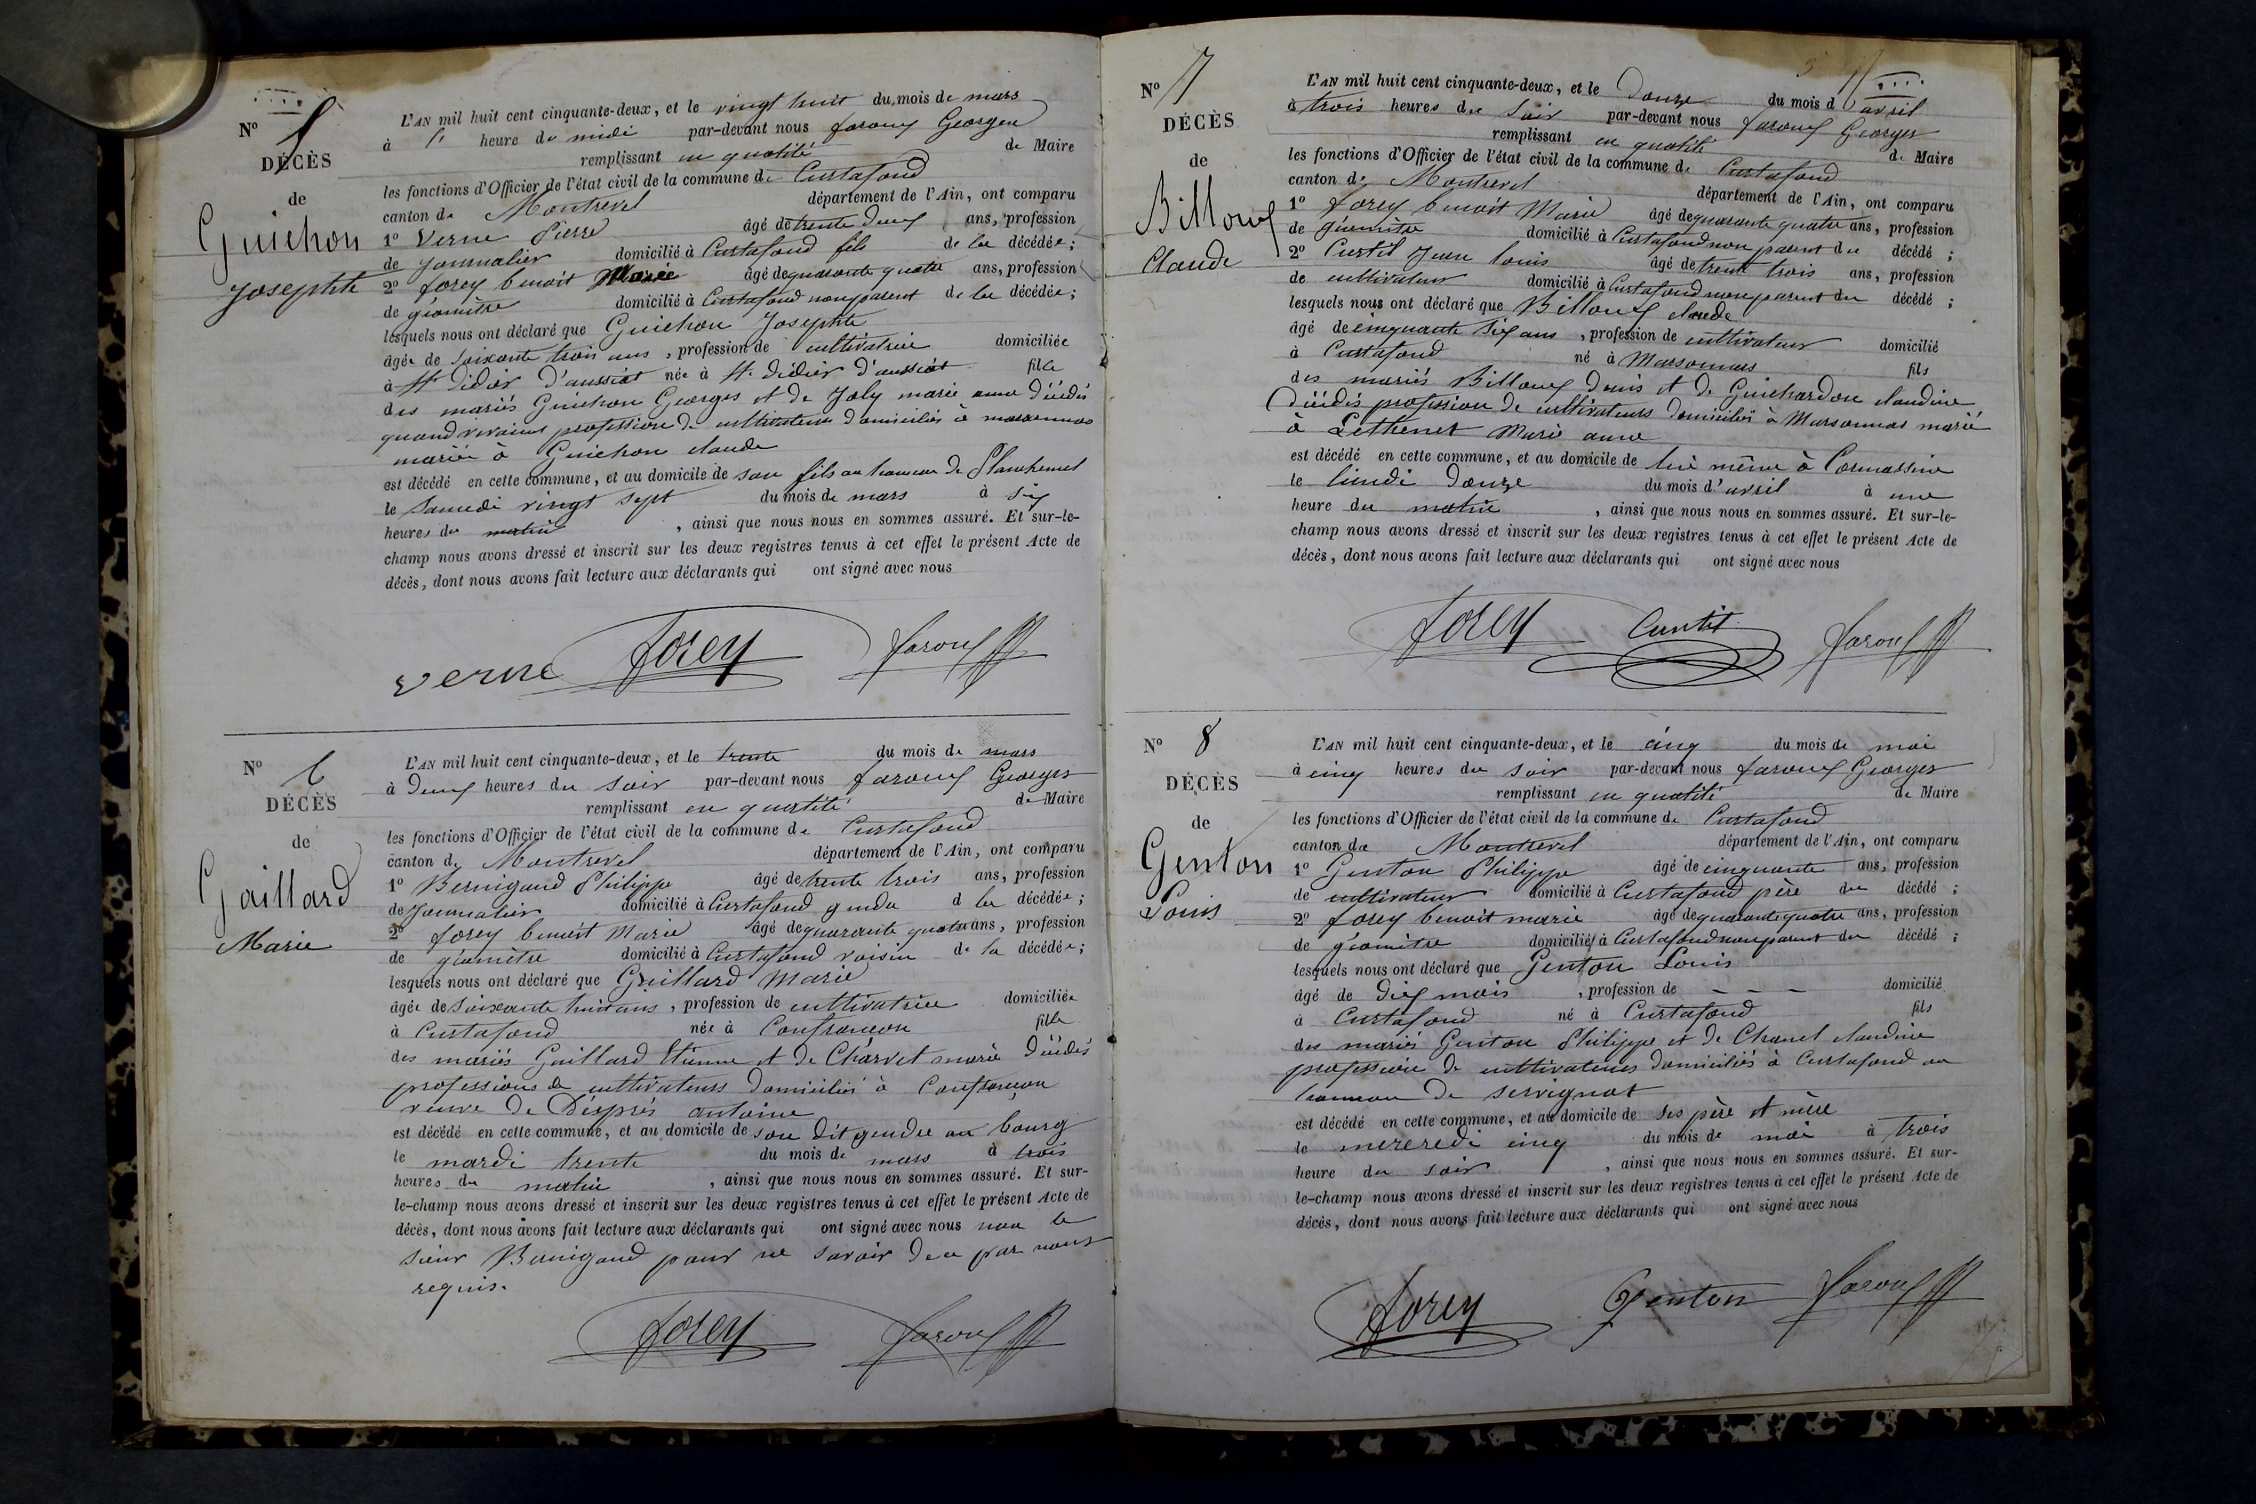 N° 5
DÉCÈS
de
Guichon
Josephte
L'AN mil huit cent cinquante-deux, et le vingt huit du mois de mars
à heure de midi par-devant nous faroux Georges
remplissant en qualité de Maire
les fonctions d'Officier de l'état civil de la commune de Curtafond
canton de Montrevel département de l'Ain, ont comparu
1° Verne Pierre âgé de trente deux ans, profession
de Journalier domicilié à Curtafond fils de la décédée;
2° forey benoit Marie âgé de quarante quatre ans, profession
de géomètre domicilié à Curtafond non parent de la décédée;
lesquels nous ont déclaré que Guichon Josephte
âgée de soixante trois ans, profession de cultivatrice domiciliée
à St Didier d'aussiat née à St Didier d'aussiat fille
des mariés Guichon Georges et de Joly marie anne décédés
quand vivaient profession de cultivateurs domiciliés à marsonnas
mariée à Guichon claude
est décédé en cette commune, et au domicile de son fils au hameau de Planchemel
le Samedi vingt sept du mois de mars à six
heures du matin, ainsi que nous nous en sommes assuré. Et sur-le-
champ nous avons dressé et inscrit sur les deux registres tenus à cet effet le présent Acte de
décès, dont nous avons fait lecture aux déclarants qui ont signé avec nous
verne forey faroux
N° 6
DÉCÈS
de
Gaillard
Marie
L'AN mil huit cent cinquante-deux, et le trente du mois de mars
à deux heures du soir par-devant nous faroux Georges
remplissant en qualité de Maire
les fonctions d'Officier de l'état civil de la commune de Curtafond
canton de Montrevel département de l'Ain, ont comparu
1° Bernigaud Philippe âgé de trente trois ans, profession
de Journalier domicilié à Curtafond gendre d la décédée;
2° forey benoit Marie âgé de quarante quatre ans, profession
de géomètre domicilié à Curtafond voisin de la décédée;
lesquels nous ont déclaré que Gaillard Marie
âgée de soixante huit ans, profession de cultivatrice domiciliée
à Curtafond née à Confrançon fille
des mariés Gaillard Etienne et de Charvet marie décédés
professions de cultivateurs domiciliés à Confrançon
veuve de Després antoine
est décédé en cette commune, et au domicile de son dit gendre au bourg
le mardi trente du mois de mars à trois
heures du matin, ainsi que nous nous en sommes assuré. Et sur-
le-champ nous avons dressé et inscrit sur les deux registres tenus à cet effet le présent Acte de
décès, dont nous avons fait lecture aux déclarants qui ont signé avec nous non le
sieur Bernigaud pour ne savoir de ce par nous
requis.
forey faroux
N° 7
DÉCÈS
de
Billoux
Claude
L'AN mil huit cent cinquante-deux, et le douze du mois d'avril
à trois heures du soir par-devant nous faroux Georges
remplissant en qualité de Maire
les fonctions d'Officier de l'état civil de la commune de Curtafond
canton de Montrevel département de l'Ain, ont comparu
1° forey benoit Marie âgé de quarante quatre ans, profession
de géomètre domicilié à Curtafond non parent du décédé;
2° Curtil Jean louis âgé de trente trois ans, profession
de cultivateur domicilié à Curtafond non parent du décédé;
lesquels nous ont déclaré que Billoux claude
âgé de cinquante six ans, profession de cultivateur domicilié
à Curtafond né à Marsonnas fils
des mariés Billoux denis et de Guichardon claudine
décédés profession de cultivateurs domiciliés à Marsonnas marié
à Pethenet Marie anne
est décédé en cette commune, et au domicile de lui même à Cormassine
le lundi douze du mois d'avril à une
heure du matin, ainsi que nous nous en sommes assuré. Et sur-le-
champ nous avons dressé et inscrit sur les deux registres tenus à cet effet le présent Acte de
décès, dont nous avons fait lecture aux déclarants qui ont signé avec nous
forey Curtil faroux
N° 8
DÉCÈS
de
Genton
Louis
L'AN mil huit cent cinquante-deux, et le cinq du mois de mai
à cinq heures du soir par-devant nous faroux Georges
remplissant en qualité de Maire
les fonctions d'Officier de l'état civil de la commune de Curtafond
canton de Montrevel département de l'Ain, ont comparu
1° Genton Philippe âgé de cinquante ans, profession
de cultivateur domicilié à Curtafond père du décédé;
2° forey benoit marie âgé de quarante quatre ans, profession
de géomètre domicilié à Curtafond non parent du décédé;
lesquels nous ont déclaré que Genton Louis
âgé de dix mois, profession de - - - domicilié
à Curtafond né à Curtafond fils
des mariés Genton Philippe et de Chanel claudine
profession de cultivateurs domiciliés à Curtafond au
hameau de servignat
est décédé en cette commune, et au domicile de ses père et mère
le mercredi cinq du mois de mai à trois
heure du soir, ainsi que nous nous en sommes assuré. Et sur-
le-champ nous avons dressé et inscrit sur les deux registres tenus à cet effet le présent Acte de
décès, dont nous avons fait lecture aux déclarants qui ont signé avec nous
forey Genton faroux